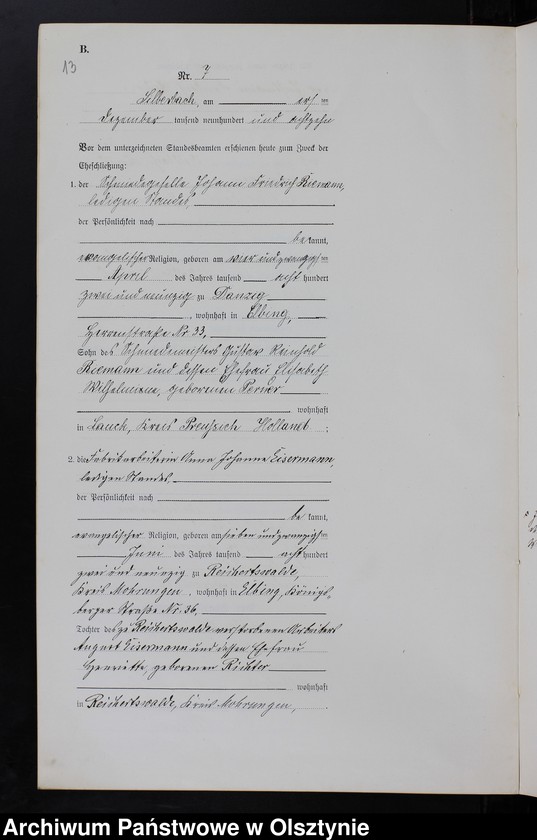 B.
13
Nr. 7
Silberbach, am ersten
Dezember tausend neunhundert und achtzehn
Vor dem unterzeichneten Standesbeamten erschienen heute zum Zweck der
Eheschließung:
1. der Schmiedegeselle Johann Friedrich Riemann,
ledigen Standes,
der Persönlichkeit nach
bekannt,
evangelischer Religion, geboren am vier und zwanzigsten
April des Jahres tausend acht hundert
zwei und neunzig zu Danzig
, wohnhaft in Elbing,
Herrenstraße Nr. 33,
Sohn des Schmiedemeisters Gustav Reinhold
Riemann und dessen Ehefrau Elisabeth
Wilhelmine, geborenen
wohnhaft
in Lauck, Kreis Preußisch Holland ;
2. die Fabrikarbeiterin Anna Johanna Eisermann,
ledigen Standes
der Persönlichkeit nach
bekannt,
evangelischer Religion, geboren am sieben und zwanzigsten
Juni des Jahres tausend acht hundert
zwei und neunzig zu Reichertswalde,
Kreis Mohrungen, wohnhaft in Elbing, Königs,
berger Straße Nr. 36,
Tochter des zu Reichertswalde verstorbenen Arbeiters
August Eisermann und dessen Ehefrau
Henriette geborenen Richter
wohnhaft
in Reichertswalde, Kreis Mohrungen,
Archiwum Państwowe w Olsztynie